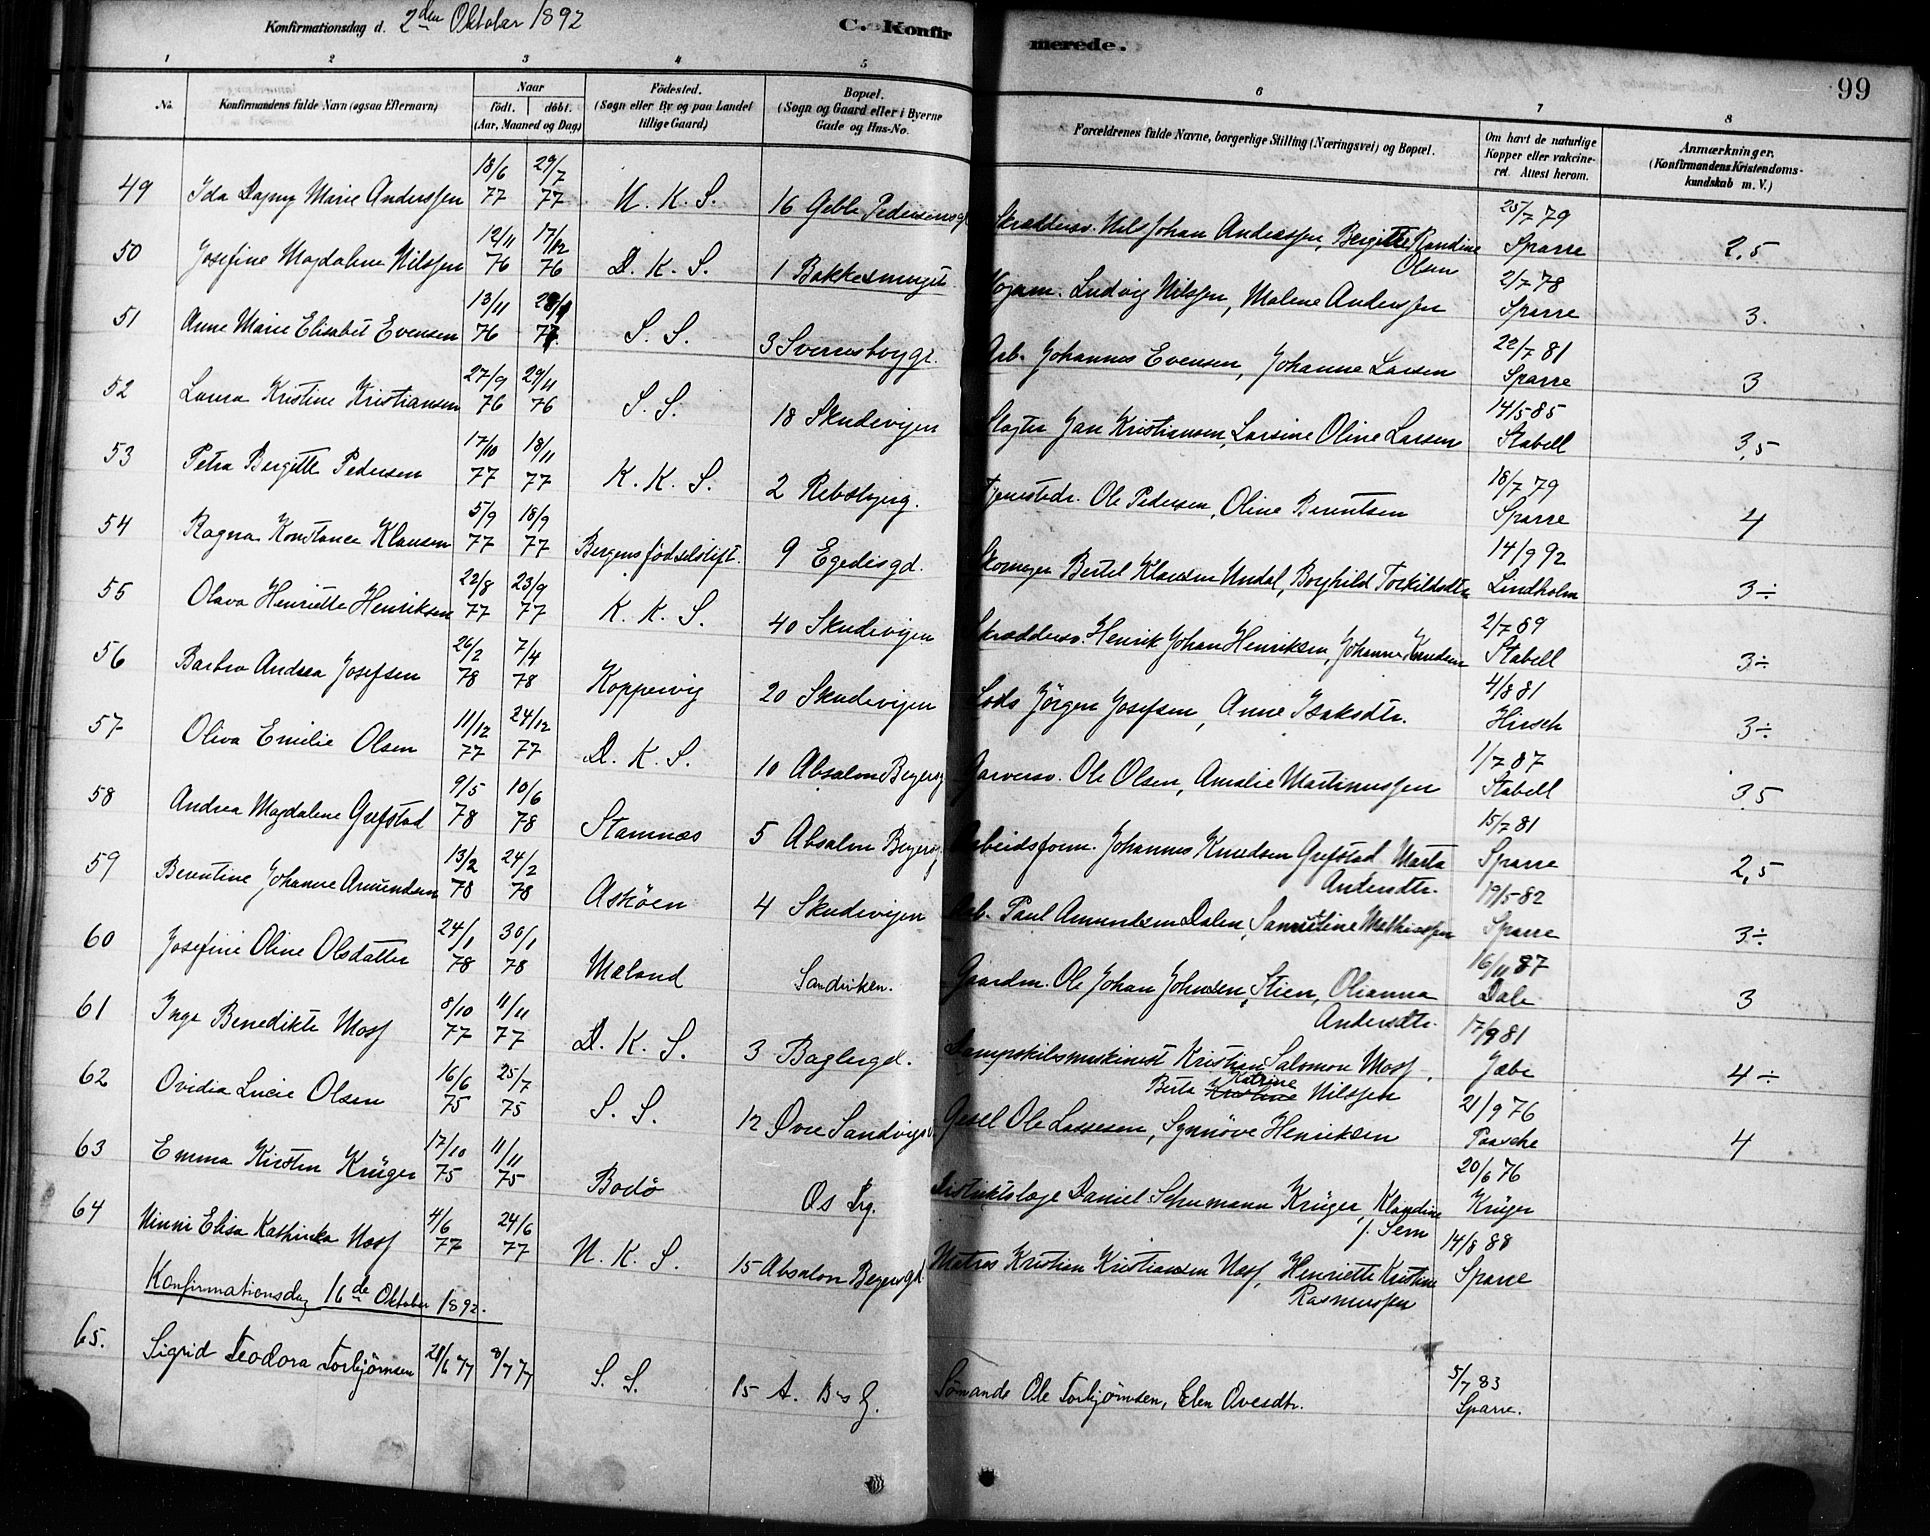 Konfirmationsdag d. 2den Oktober 1892 C. Konfirmerede. 99
1 2 3 4 5 6 7 8
No. Konfirmandens fulde Navn (ogsaa Efternavn) Naar født. døbt. (Aar, Maaned og Dag) Fødested. (Sogn eller By og paa Landet tillige Gaard) Bopæl. (Sogn og Gaard eller i Byerne Gade og Hus-No. Forældrenes fulde Navne, borgerlige Stilling (Næringsvei) og Bopæl. Om havt de naturlige Kopper eller vakcineret. Attest herom. Anmærkninger. (Konfirmandens Kristendomskundskab m. V.)
49 Ida Dagny Marie Anderssen 18/6 77 29/7 77 N. K. S. 16 Geble Pedersensg. Skræddersv. Nils Johan Anderssen, Bergitte Randine Olsen 25/7 79 Sparre 2,5
50 Josefine Magdalene Nilssen 12/11 76 17/12 76 D. K. S. 1 Bakkesmuget Ludvig Nilssen, Malene Anderssen 2/7 78 Sparre 3.
51 Anne Marie Elisabet Evensen 13/11 76 77 S. S. 3 Sverresborggt. Arb. Johannes Evensen, Johanne Larsen 22/7 81 Sparre 3
52 Laura Kristine Kristiansen 27/9 76 29/11 76 S. S. 18 Skudevigen Slagter Jan Kristiansen, Larsine Oline Larsen 14/5 85 Stabell 3,5
53 Petra Bergitte Pedersen 17/10 77 18/11 77 K. K. S. 2 Rebsbjerg. Tjenestedr. Ole Pedersen, Oline Berentsen 18/7 79 Sparre 4
54 Ragna Konstance Klausen 5/9 77 18/9 77 Bergens fødselstift. 9 Egedisgd. Skomager Bertel Klausen Undal, Borghild Torkildsdtr 14/9 92 Lindholm 3÷
55 Olava Henriette Henriksen 22/8 77 23/9 77 K. K. S. 40 Skudevigen Skræddersv. Henrik Johan Henriksen, Johanne Knudsen 2/7 89 Stabell 3÷
56 Barbro Andrea Josefsen 26/2 78 7/4 78 Koppervig 20 Skudevigen Lods Jørgen Josefsen, Anne Isaksdtr. 4/8 81 Hirsch 3÷
57 Oliva Emilie Olsen 11/12 77 24/12 77 D. K. S. 10 Absalon Beyersg Garversv. Ole Olsen, Amalie Martinussen 1/7 87 Stabell 3,5
58 Andrea Magdalene Grefstad 9/5 78 10/6 78 Stamnæs 5 Absalon Beyersg Arbeidsform. Johannes Knudsen Grefstad, Marta Andersdtr. 15/7 81 Sparre 2,5
59 Berentine Johanne Amundsen 13/2 78 24/2 78 Askøen 4 Skudevigen Arb. Paul Amundsen Dalen, Mathiassen 19/5 82 Sparre 3÷
60 Josefine Oline Olsdatter 24/1 78 30/1 78 Mæland Sandviken. Gaardm. Ole Johan Johnsen, Stien, Olianna Andersdtr. 16/11 87 Dale 3
61 Inga Benedikte Moss 8/10 77 11/11 77 D. K. S. 3 Baglergd. Dampskibsmaskinist Kristian Salomon Moss, Berta Katrine Nilssen 17/9 81 Jæbe 4÷
62 Ovidia Lucie Olsen 16/6 75 25/7 75 S. S. 12 Øvre Sandvigsv. Gesel Ole Lassesen, Synnøve Henriksen 21/9 76 Paasche 4
63 Emma Kirsten Krüger 17/10 75 11/11 75 Bodø Os Prg. Distriktslæge Daniel Schumann Krüger, Klaudine f. Sem 20/6 76 Krüger
64 Ninni Elisa Kathinka Næss 4/6 77 24/6 77 N. K. S. 15 Absalon Beyersgd. Matros Kristian Kristiansen Næss, Henriette Kristine Rasmussen 14/8 88 Sparre
Konfirmationsdag 16de Oktober 1892.
65. Sigrid Teodora Torbjørnsen 28/6 77 8/7 77 S. S. 15 A. B's G. Sømand Ole Torbjørnsen, Elen Ovesdtr. 5/7 83 Sparre.